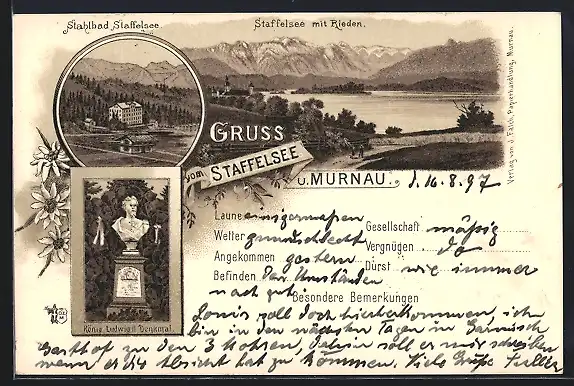 Stahlbad Staffelsee.
Staffelsee mit Rieden.
GRUSS
vom STAFFELSEE
u. MURNAU.
d. 16. 8. 97
Verlag von J. Fälch, Papierhandlung, Murnau.
Laune einigermaßen
Gesellschaft mäßig
Wetter grundschlecht
Vergnügen do
Angekommen gestern
Durst wie immer
Befinden den Umständen
nach gut
Besondere Bemerkungen
König Ludwig II Denkmal.
soll doch hierherkommen, ich
bin in den nächsten Tagen in Garmisch
Gasthof zu den 3 Mohren, dahin soll er mir schreiben
wenn er die Absicht hat zu kommen. Viele Grüße